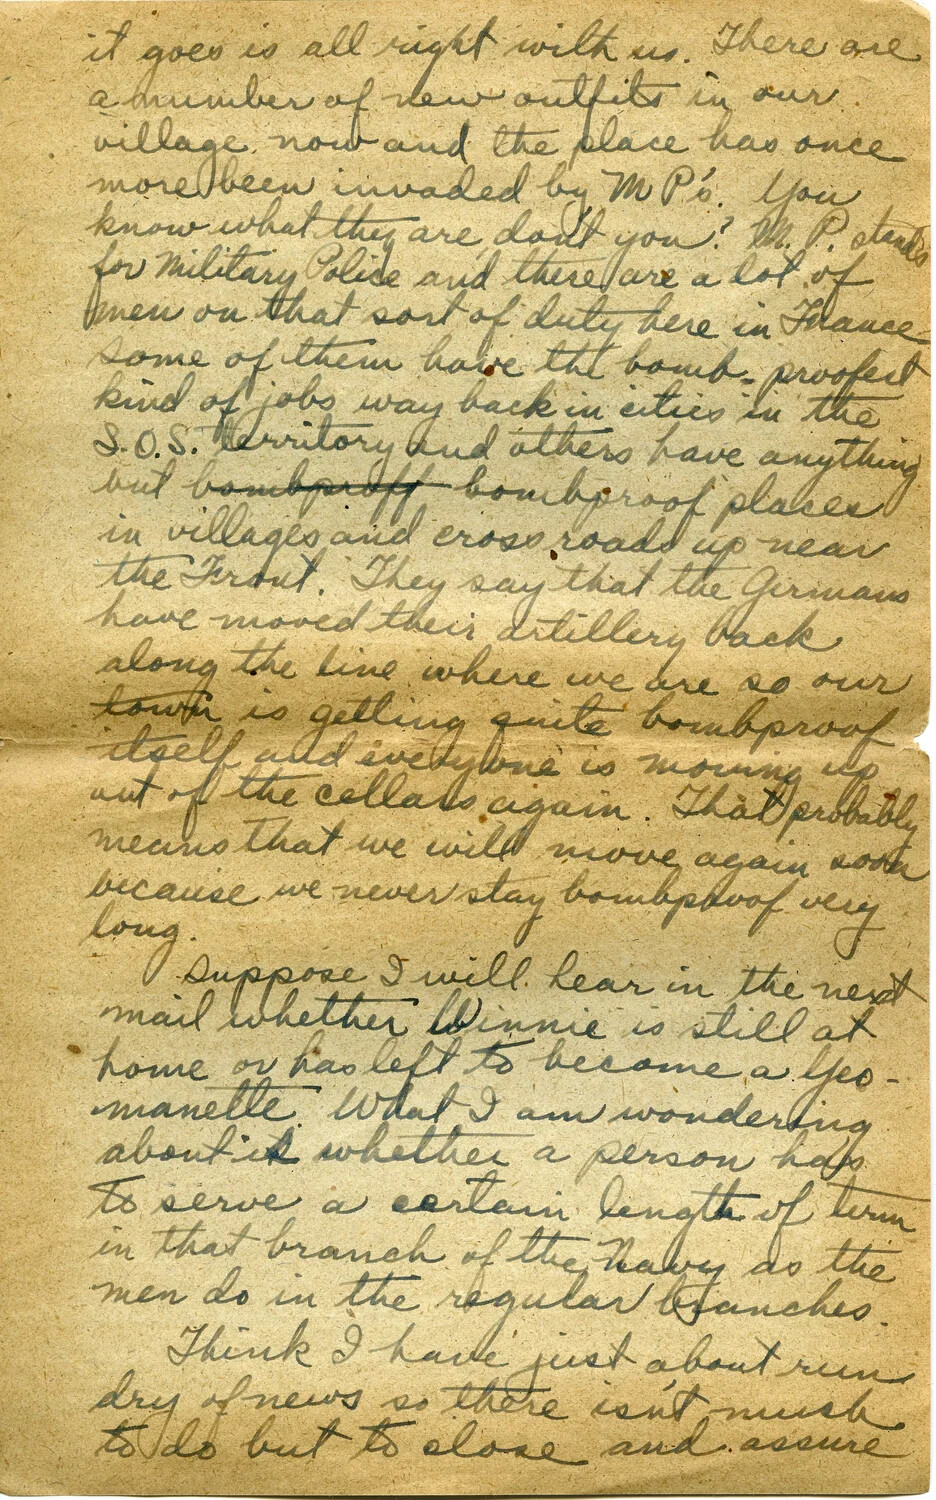 it goes is all right with us. There are
a number of new outfits in our
village now and the place has once
more been invaded by M P's. You
know what they are, don't you? M. P. stands
for Military Police and there are a lot of
men on that sort of duty here in France
some of them have the bomb-proofest
kind of jobs way back in cities in the
S.O.S. territory and others have anything
but bombproff bombproof places
in villages and cross roads up near
the Front. They say that the Germans
have moved their artillery back
along the line where we are so our
town is getting quite bombproof
itself and everyone is moving up
out of the cellars again. That probably
means that we will move again soon
because we never stay bombproof very
long.
Suppose I will hear in the next
mail whether Winnie is still at
home or has left to become a Yeo-
manette. What I am wondering
about is whether a person has
to serve a certain length of term
in that branch of the Navy as the
men do in the regular branches.
Think I have just about run
dry of news so there isn't much
to do but to close and assure